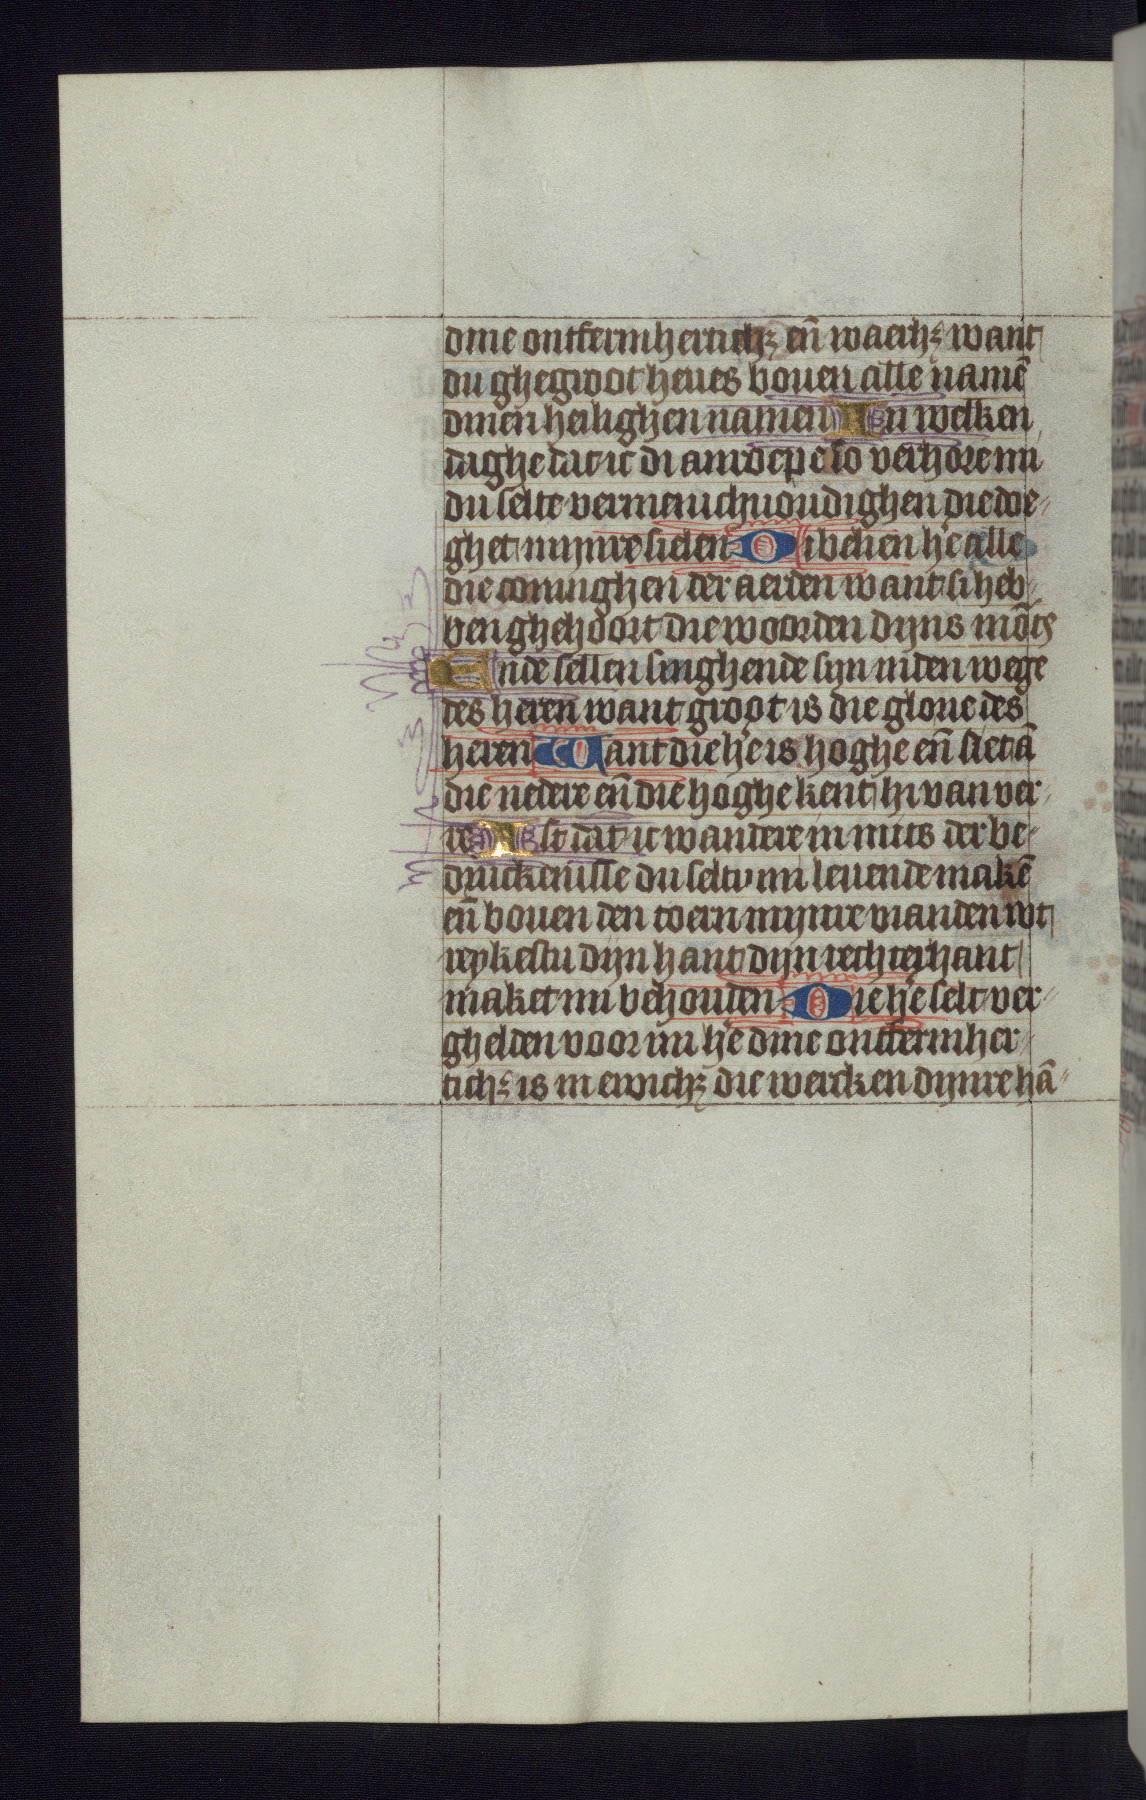 dine ontfermherticħꝫ eñ waerhꝫ want
du ghegroot heues bouen alle namē
dinen heilighen namen In welken
daghe dat ic di anroepe so verhore mi
du selte vermenichuoudighen die doe⸗
ghet mijnre sielen Di belien h̄e alle
die coninghen der aerden want si heb⸗
ben ghehoort die woorden dijns mōts
Ende sellen singhende sijn inden wege
des heren want groot is die glorie des
heren Want die h̄e is hoghe eñ siet ā
die nedere eñ die hoghe kent hi van ver⸗
re Ist dat ic wandere in mids der be⸗
druckenisse du seltu mi leuende makē
eñ bouen den toern mijnre vianden wt
reykestu dijn hant dijn rechterhant
maket mi behouden Die h̄e selt ver⸗
ghelden voor mi h̄e dine ontfermher⸗
tichꝫ is in ewichꝫ die wercken dijnre hā⸗